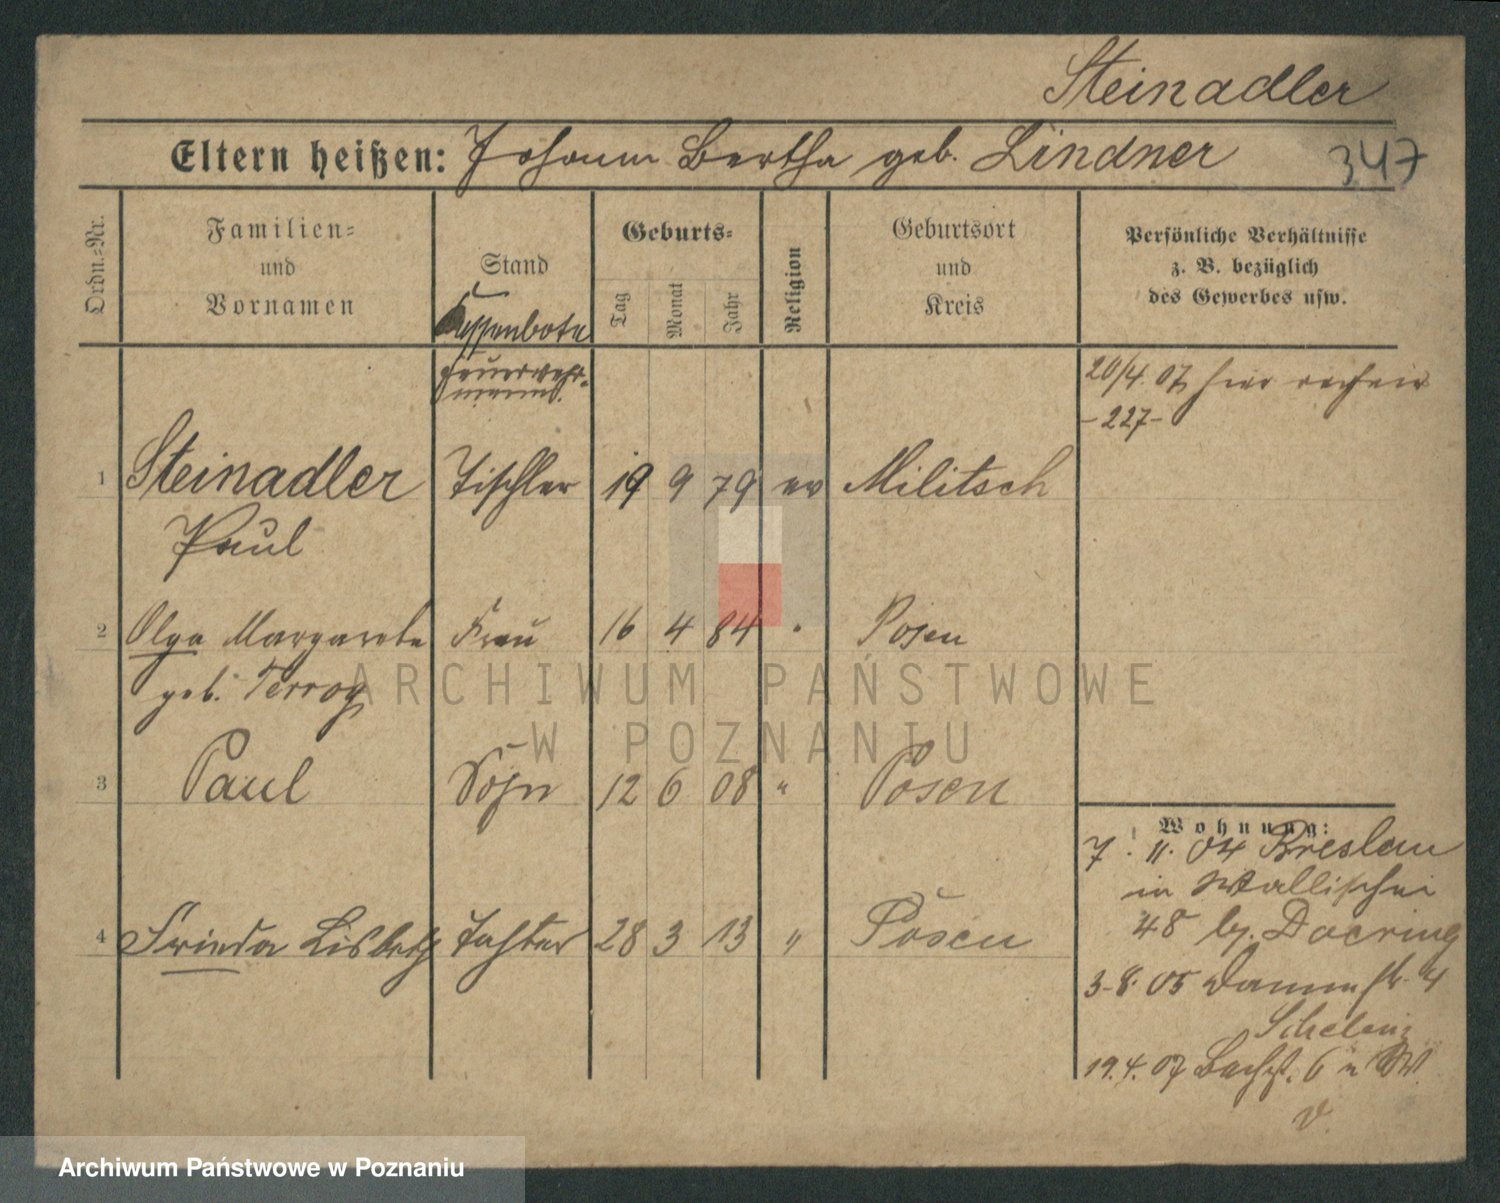 Steinadler
Eltern heißen: Johann Bertha geb. Lindner
347
Ordn.-Nr.
Familien-
und
Vornamen
Stand
Geburts-
Tag
Monat
Jahr
Religion
Geburtsort
und
Kreis
Persönliche Verhältnisse
z. B. bezüglich
des Gewerbes usw.
Kassenbote
Feuerwehr-
mann
20/4. 07 hier
-227-
1 Steinadler Tischler 19 9 79 ev Militsch
Paul
2 Olga Margarete Frau 16 4 84 " Posen
geb. Perrog
3 Paul Sohn 12 6 08 " Posen
4 Frieda Lisbeth Tochter 28 3 13 " Posen
Wohnung:
7. 11. 04 Breslau
in Wallischei
48 bj. Doering
3-8. 05 Dammstr. 4
Schelenz
19.4.07 Bachst. 6
ARCHIWUM PAŃSTWOWE
W POZNANIU
Archiwum Państwowe w Poznaniu